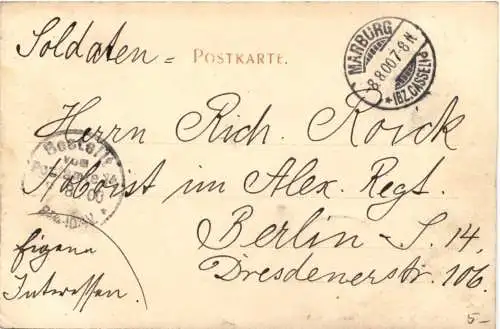 Soldaten = POSTKARTE.
MARBURG
8.8.00. 7-8 N.
* (BZ. CASSEL)
Herrn Rich. Roick
Bestellt
vom
Postamte
8 00
Hoboist im Alex. Regt.
Berlin - S. 14,
Dresdenerstr. 106.
Eigene
Interessen.
5-